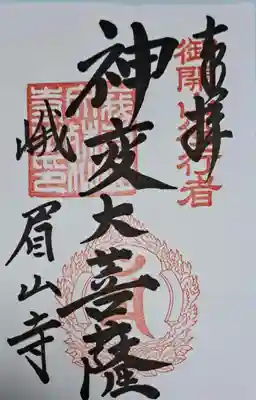 奉拝
御開山行者
神変大菩薩
峨眉山寺